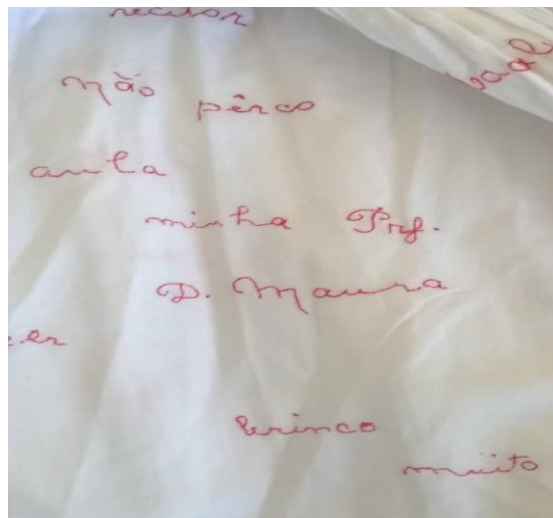 não pêrco
aula
minha Prof.
D. Maura
brinco
muito